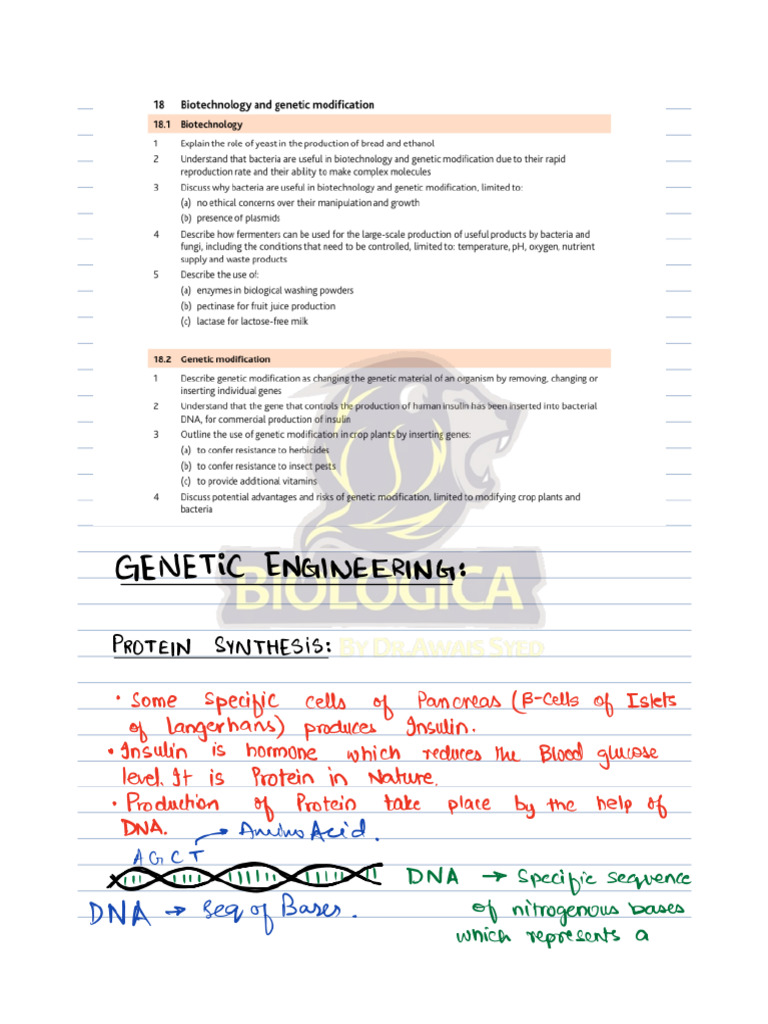 18 Biotechnology and genetic modification
18.1 Biotechnology
1 Explain the role of yeast in the production of bread and ethanol
2 Understand that bacteria are useful in biotechnology and genetic modification due to their rapid
reproduction rate and their ability to make complex molecules
3 Discuss why bacteria are useful in biotechnology and genetic modification, limited to:
(a) no ethical concerns over their manipulation and growth
(b) presence of plasmids
4 Describe how fermenters can be used for the large-scale production of useful products by bacteria and
fungi, including the conditions that need to be controlled, limited to: temperature, pH, oxygen, nutrient
supply and waste products
5 Describe the use of:
(a) enzymes in biological washing powders
(b) pectinase for fruit juice production
(c) lactase for lactose-free milk
18.2 Genetic modification
1 Describe genetic modification as changing the genetic material of an organism by removing, changing or
inserting individual genes
2 Understand that the gene that controls the production of human insulin has been inserted into bacterial
DNA, for commercial production of insulin
3 Outline the use of genetic modification in crop plants by inserting genes:
(a) to confer resistance to herbicides
(b) to confer resistance to insect pests
(c) to provide additional vitamins
4 Discuss potential advantages and risks of genetic modification, limited to modifying crop plants and
bacteria
GENETIC ENGINEERING:
BIOLOGICA
PROTEIN SYNTHESIS: BY DR.AWAIS SYED
• Some specific cells of Pancreas (β-Cells of Islets
of langerhans) produces Insulin.
• Insulin is hormone which reduces the Blood glucose
level. It is Protein in Nature.
• Production of Protein take place by the help of
DNA. → Amino Acid.
A G C T
DNA → Specific sequence
DNA → Seq of Bases. of nitrogenous bases
which represents a